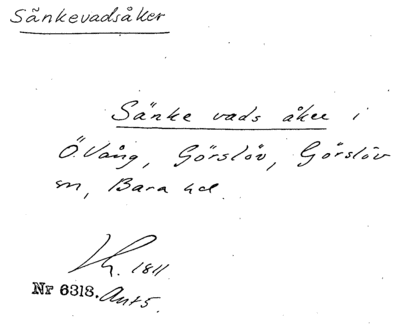 Sänkevadsåker
Sänke vads åker i
Ö.Vång, Görslöv, Görslöv
sn, Bara hd.
Lh. 1811
Nr 6318. Ant 5.